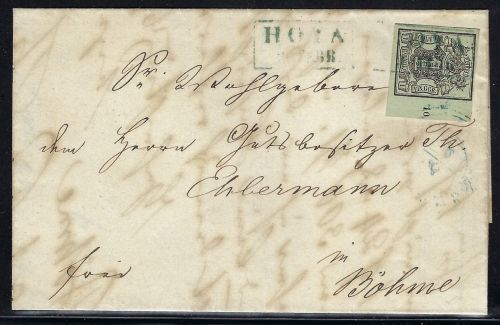 HOYA
BR.
Sr. Wohlgeboren
dem Herrn Gutsbesitzer Th
Ehlermann
frei
in
Böhme
10